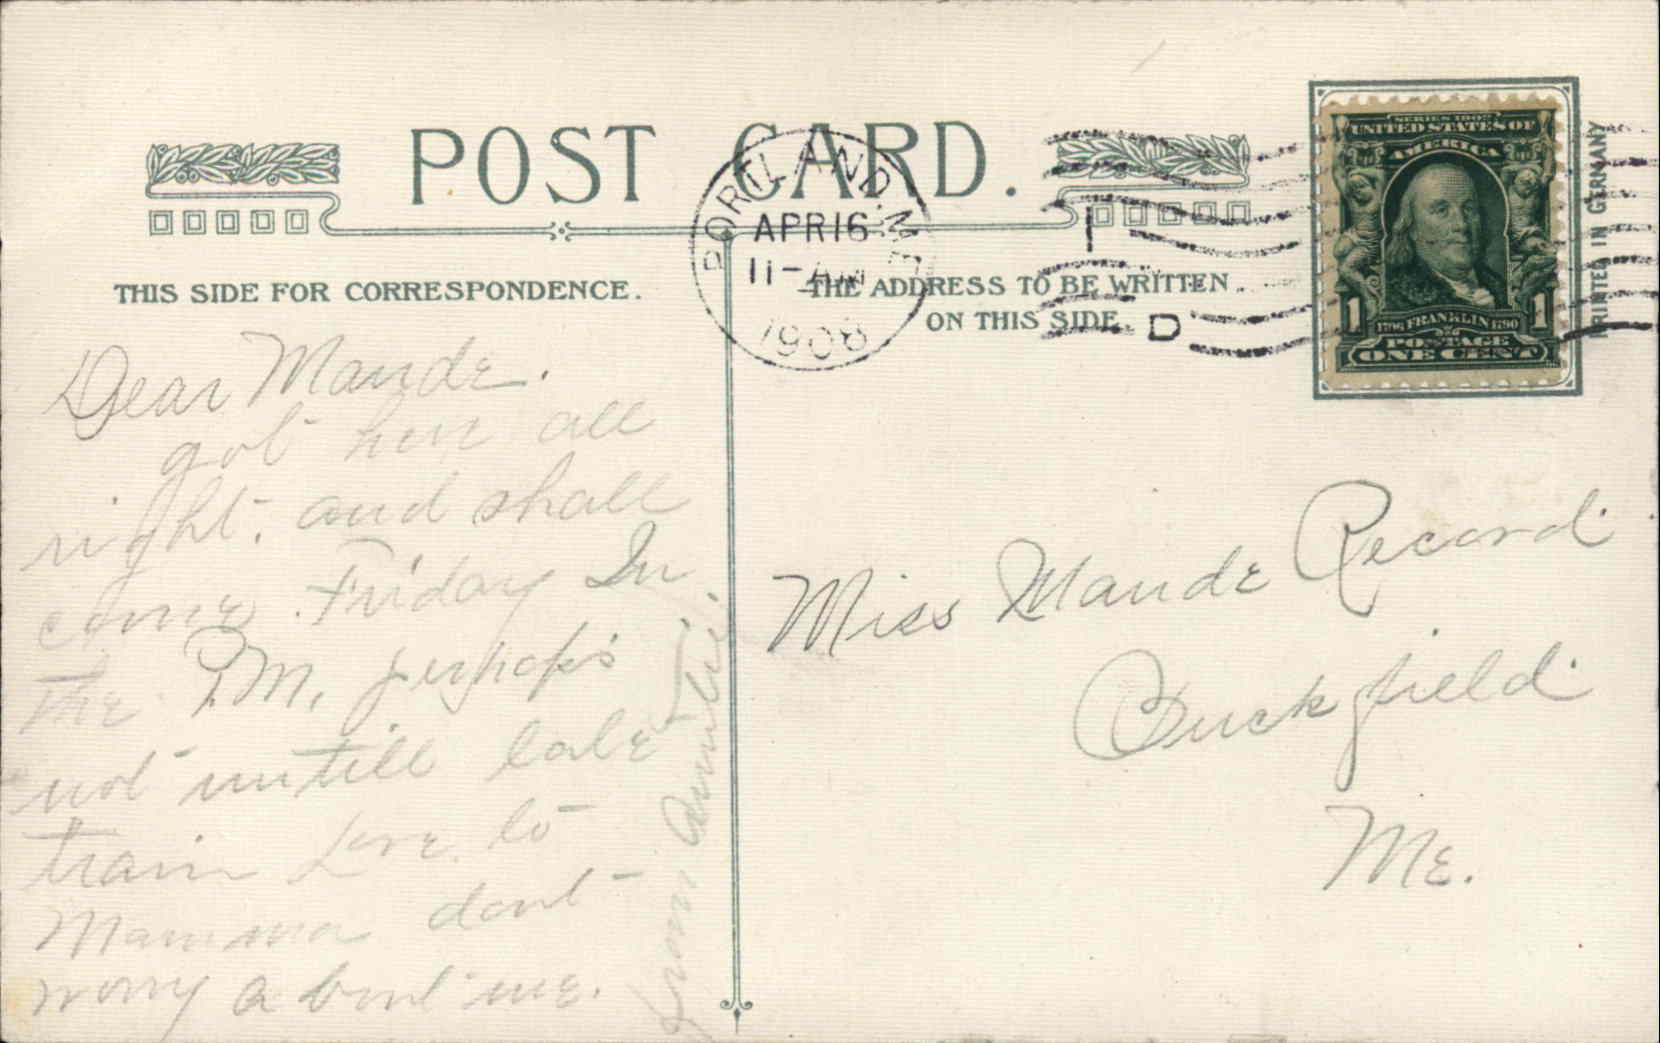 POST CARD.
THIS SIDE FOR CORRESPONDENCE.
THE ADDRESS TO BE WRITTEN
ON THIS SIDE.
PORTLAND, ME
APR 16
11-AM
1908
I
D
SERIES 1902
UNITED STATES OF
AMERICA
1 1
1706 FRANKLIN 1790
POSTAGE
ONE CENT
PRINTED IN GERMANY
Dear Maude.
got here all
right. and shall
come Friday In
the P.M. perhaps
not untill late
train Love to
Mamma dont
worry a bout me.
from Auntie.
Miss Maude Record
Buckfield
Me.